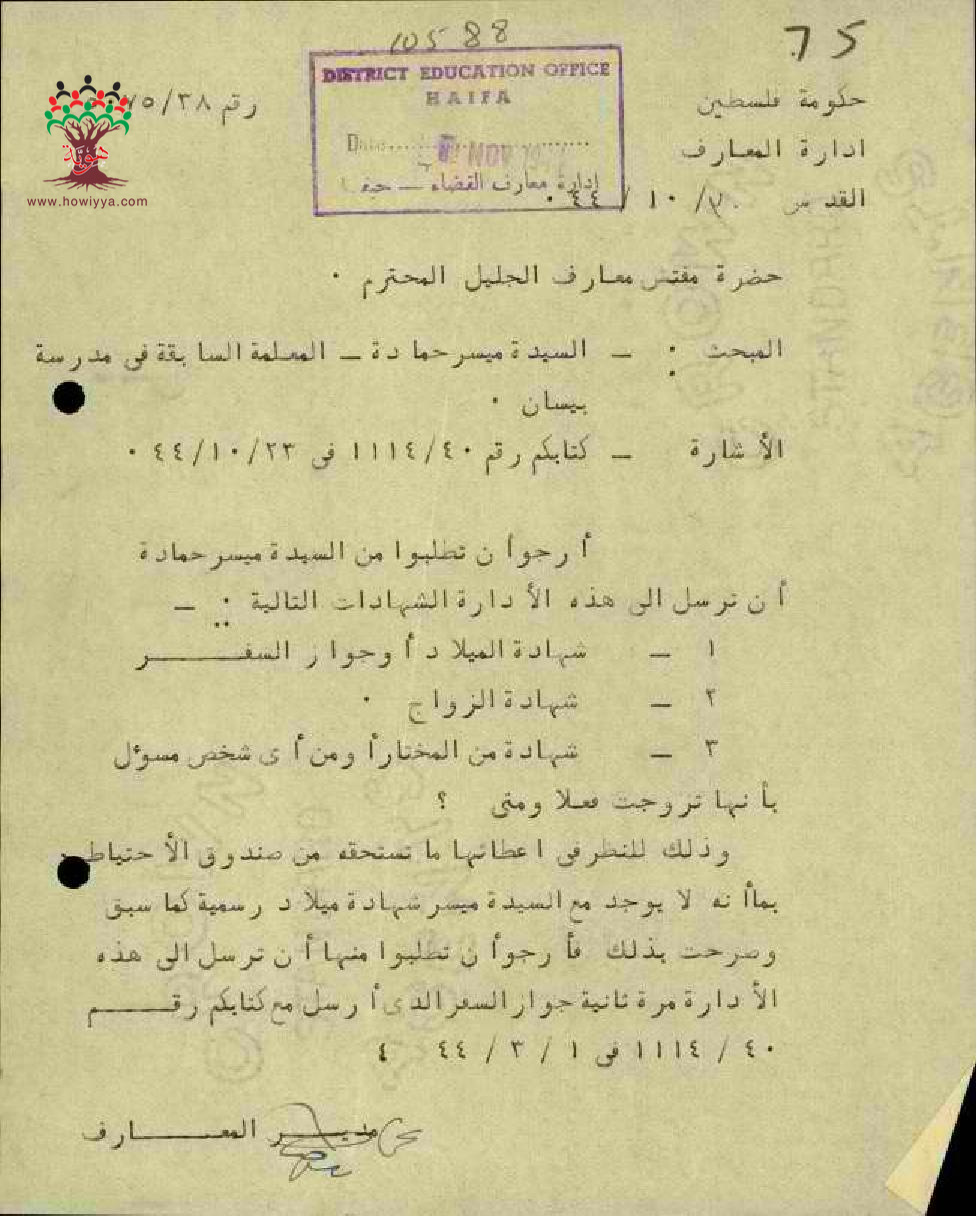 10588
75
DISTRICT EDUCATION OFFICE
HAIFA
Date
NOV
إدارة معارف القضاء – حيفا
حكومة فلسطين
ادارة المعارف
القدس /١٠/٤٤ ٠
رقم ٧٥/٣٨
هوية
www.howiyya.com
حضرة مفتش معارف الجليل المحترم ٠
المبحث : – السيدة ميسر حمادة – المعلمة السابقة فى مدرسة
بيسان ٠
الأشارة – كتابكم رقم ١١١٤/٤٠ فى ٤٤/١٠/٢٣ ٠
أرجو أن تطلبوا من السيدة ميسر حمادة
أن ترسل الى هذه الأدارة الشهادات التالية : –
١ – شهادة الميلاد أو جواز السفـــــر
٢ – شهادة الزواج ٠
٣ – شهادة من المختار أو من أى شخص مسوٴل
بأنها تزوجت فعلا ومتى ؟
وذلك للنظر فى اعطائها ما تستحقه من صندوق الأحتياط
بماأنه لا يوجد مع السيدة ميسر شهادة ميلاد رسمية كما سبق
وصرحت بذلك فأرجو أن تطلبوا منها أن ترسل الى هذه
الأدارة مرة ثانية جواز السفر الذى أرسل مع كتابكم رقـــــم
٤٠ / ١١١٤ فى ١ / ٣ / ٤٤
مديـــر المعـــــارف